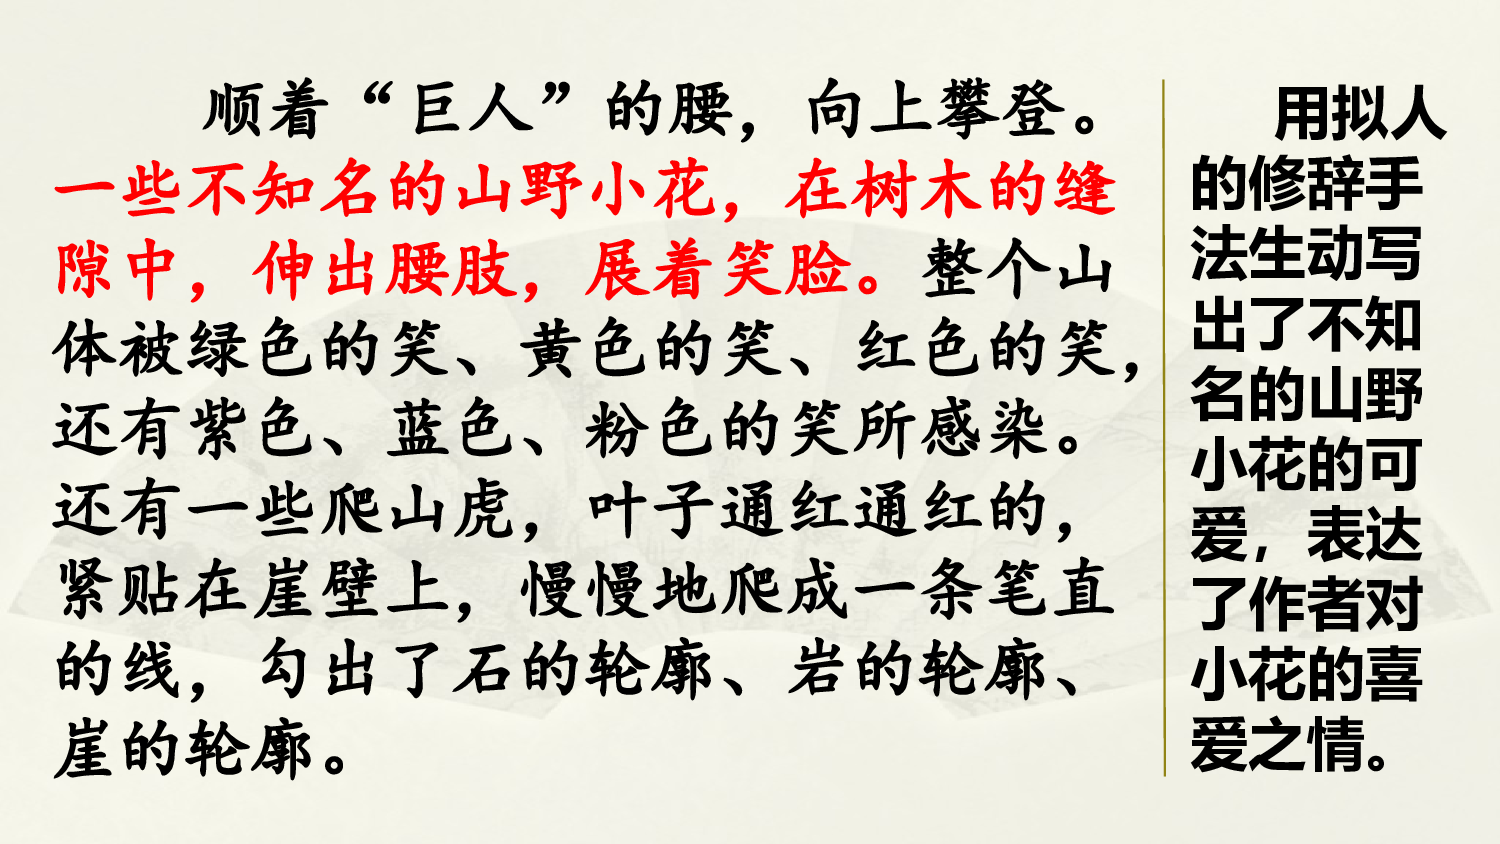 顺着“巨人”的腰，向上攀登。
一些不知名的山野小花，在树木的缝
隙中，伸出腰肢，展着笑脸。整个山
体被绿色的笑、黄色的笑、红色的笑，
还有紫色、蓝色、粉色的笑所感染。
还有一些爬山虎，叶子通红通红的，
紧贴在崖壁上，慢慢地爬成一条笔直
的线，勾出了石的轮廓、岩的轮廓、
崖的轮廓。
用拟人
的修辞手
法生动写
出了不知
名的山野
小花的可
爱，表达
了作者对
小花的喜
爱之情。